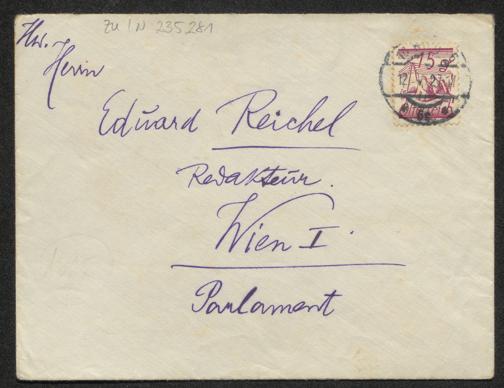 ZU IN 235281
Herrn
Eduard Reichel
Redakteur.
Wien I.
Parlament
15